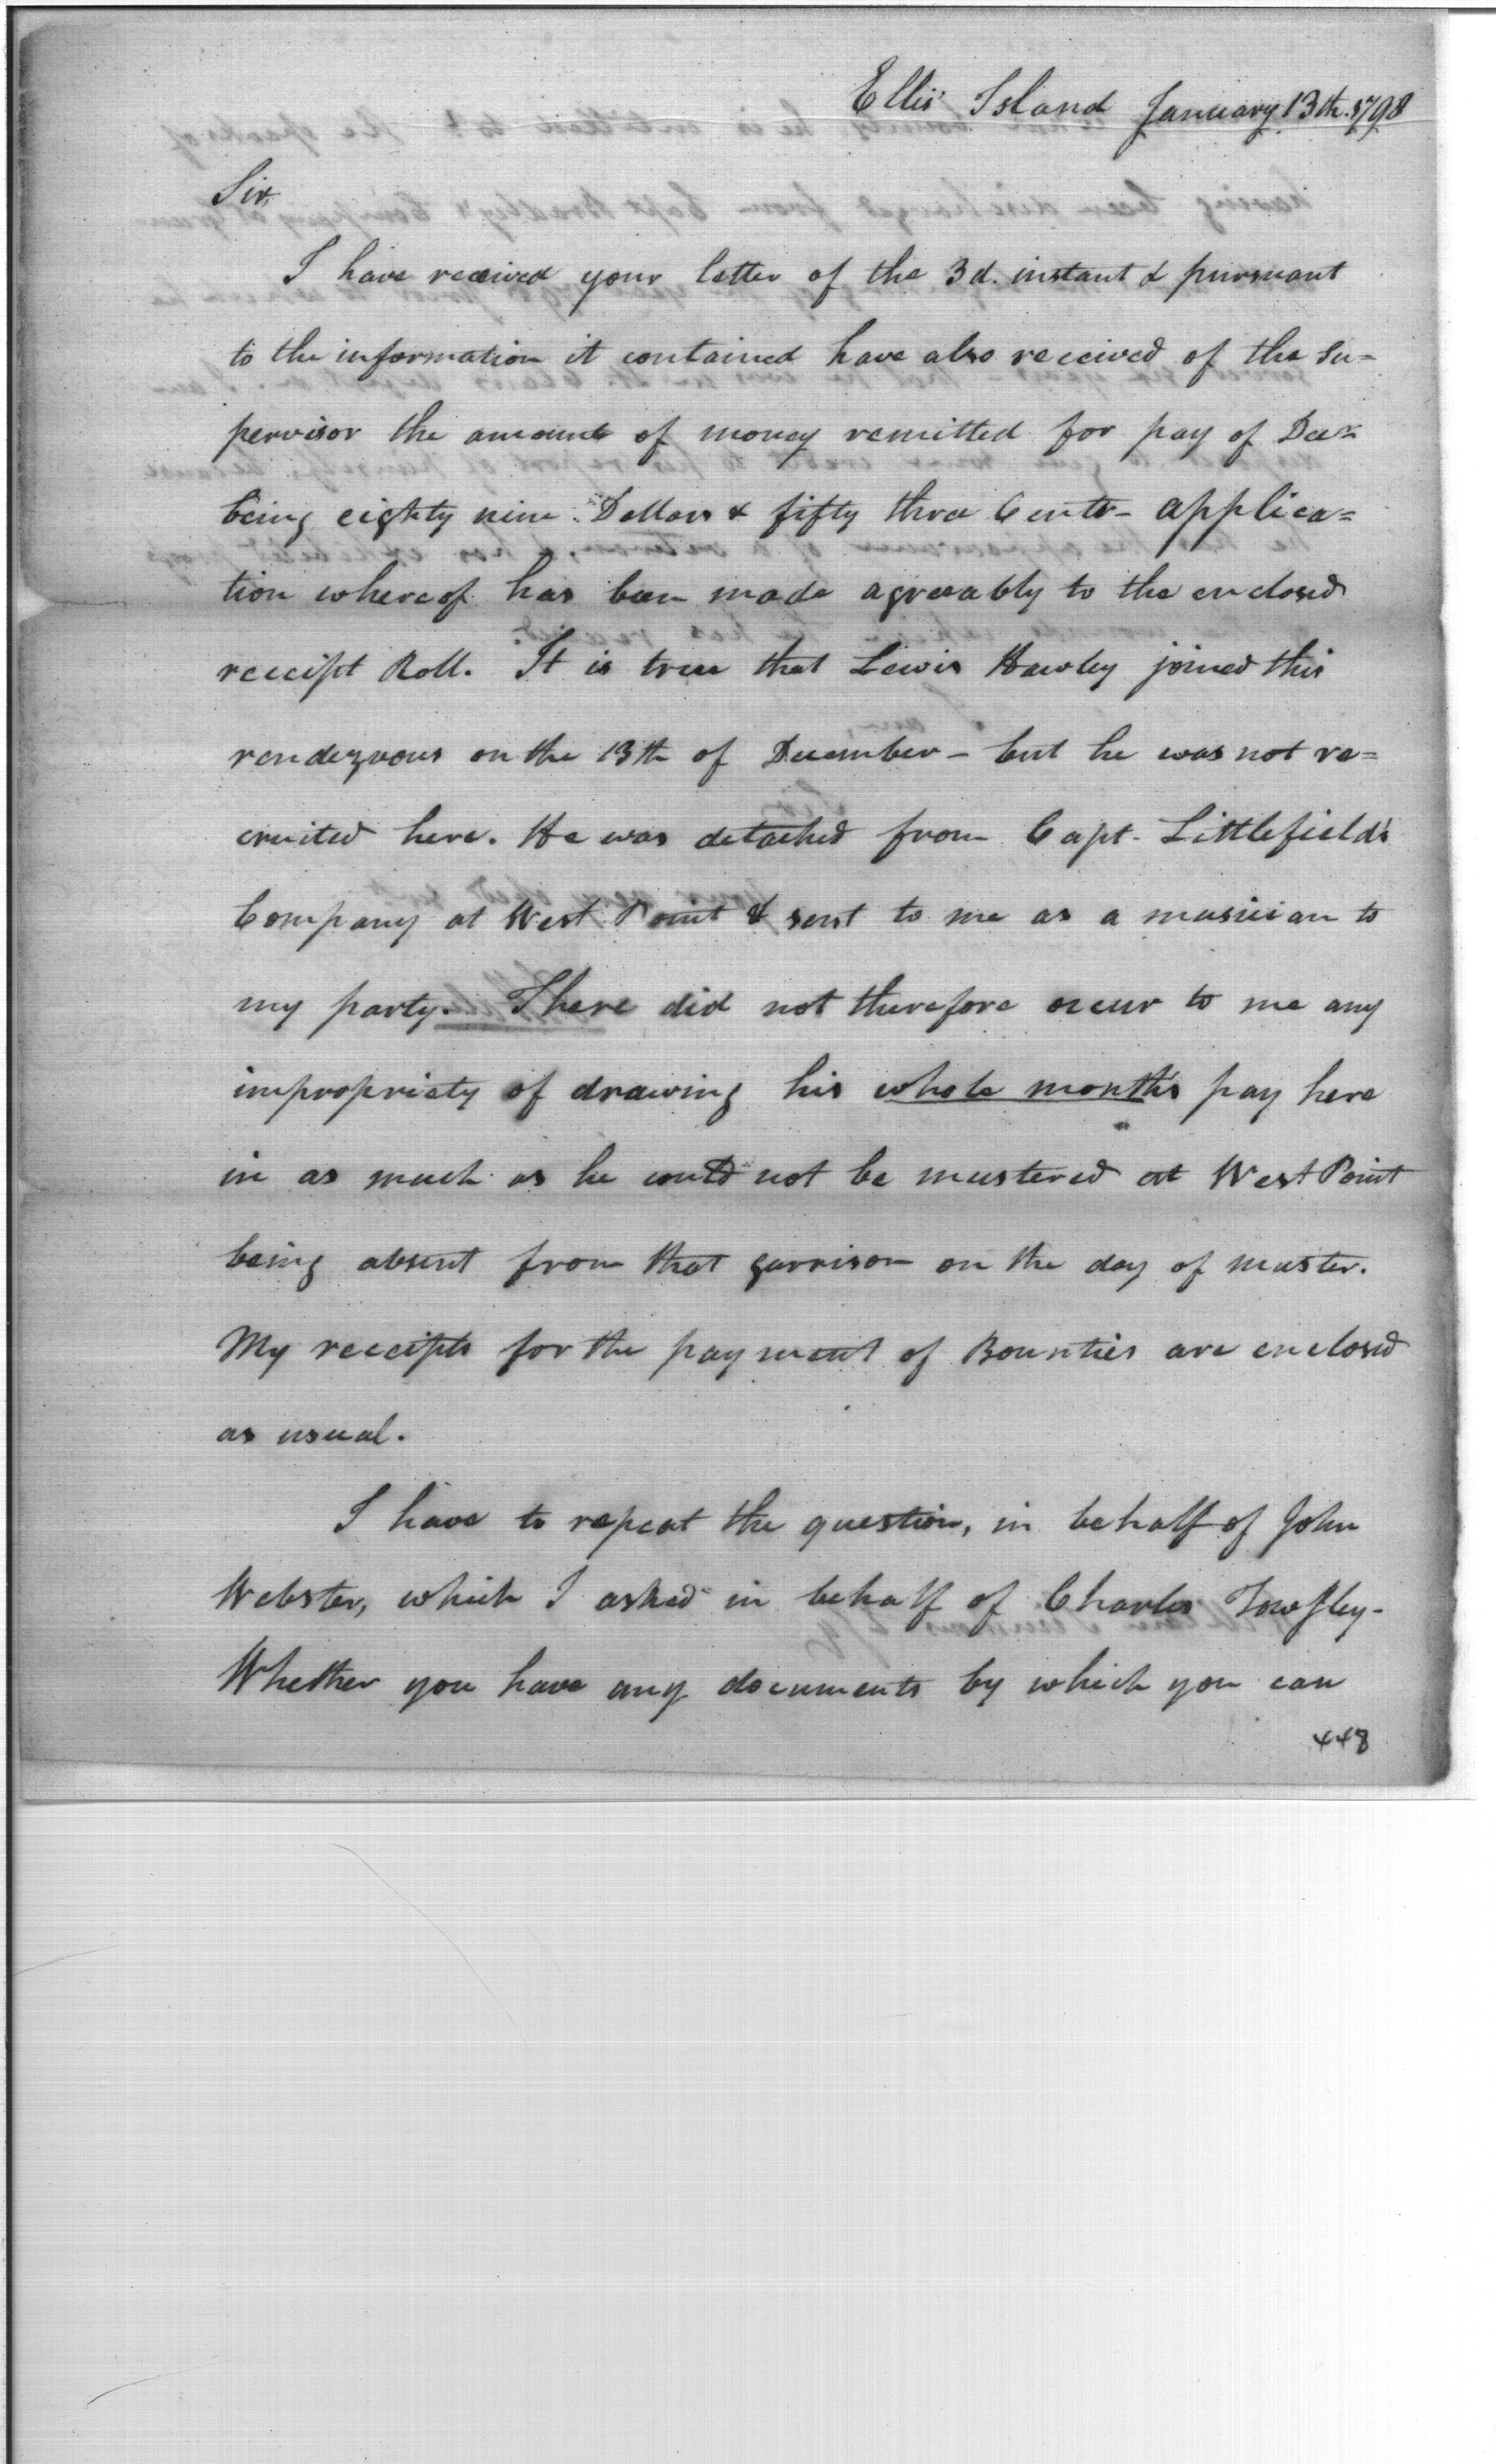 Ellis' Island January 13th. 1798
Sir,
I have received your letter of the 3d. instant & pursuant
to the information it contained have also received of the Su=
pervisor the amount of money remitted for pay of Decr
being eighty nine Dollars & fifty three Cents - applica=
tion whereof has been made agreeably to the enclosed
receipt Roll. It is true that Lewis Hawley joined this
rendezvous on the 13th of December - but he was not re=
cruited here. He was detached from Capt. Littlefield's
Company at West Point & sent to me as a musician to
my party. There did not therefore occur to me any
impropriety of drawing his whole month's pay here
in as much as he could not be mustered at West Point
being absent from that garrison on the day of muster.
My receipts for the payment of Bounties are enclosed
as usual.
I have to repeat the question, in behalf of John
Webster, which I asked in behalf of Charles Towsley-
Whether you have any documents by which you can
448